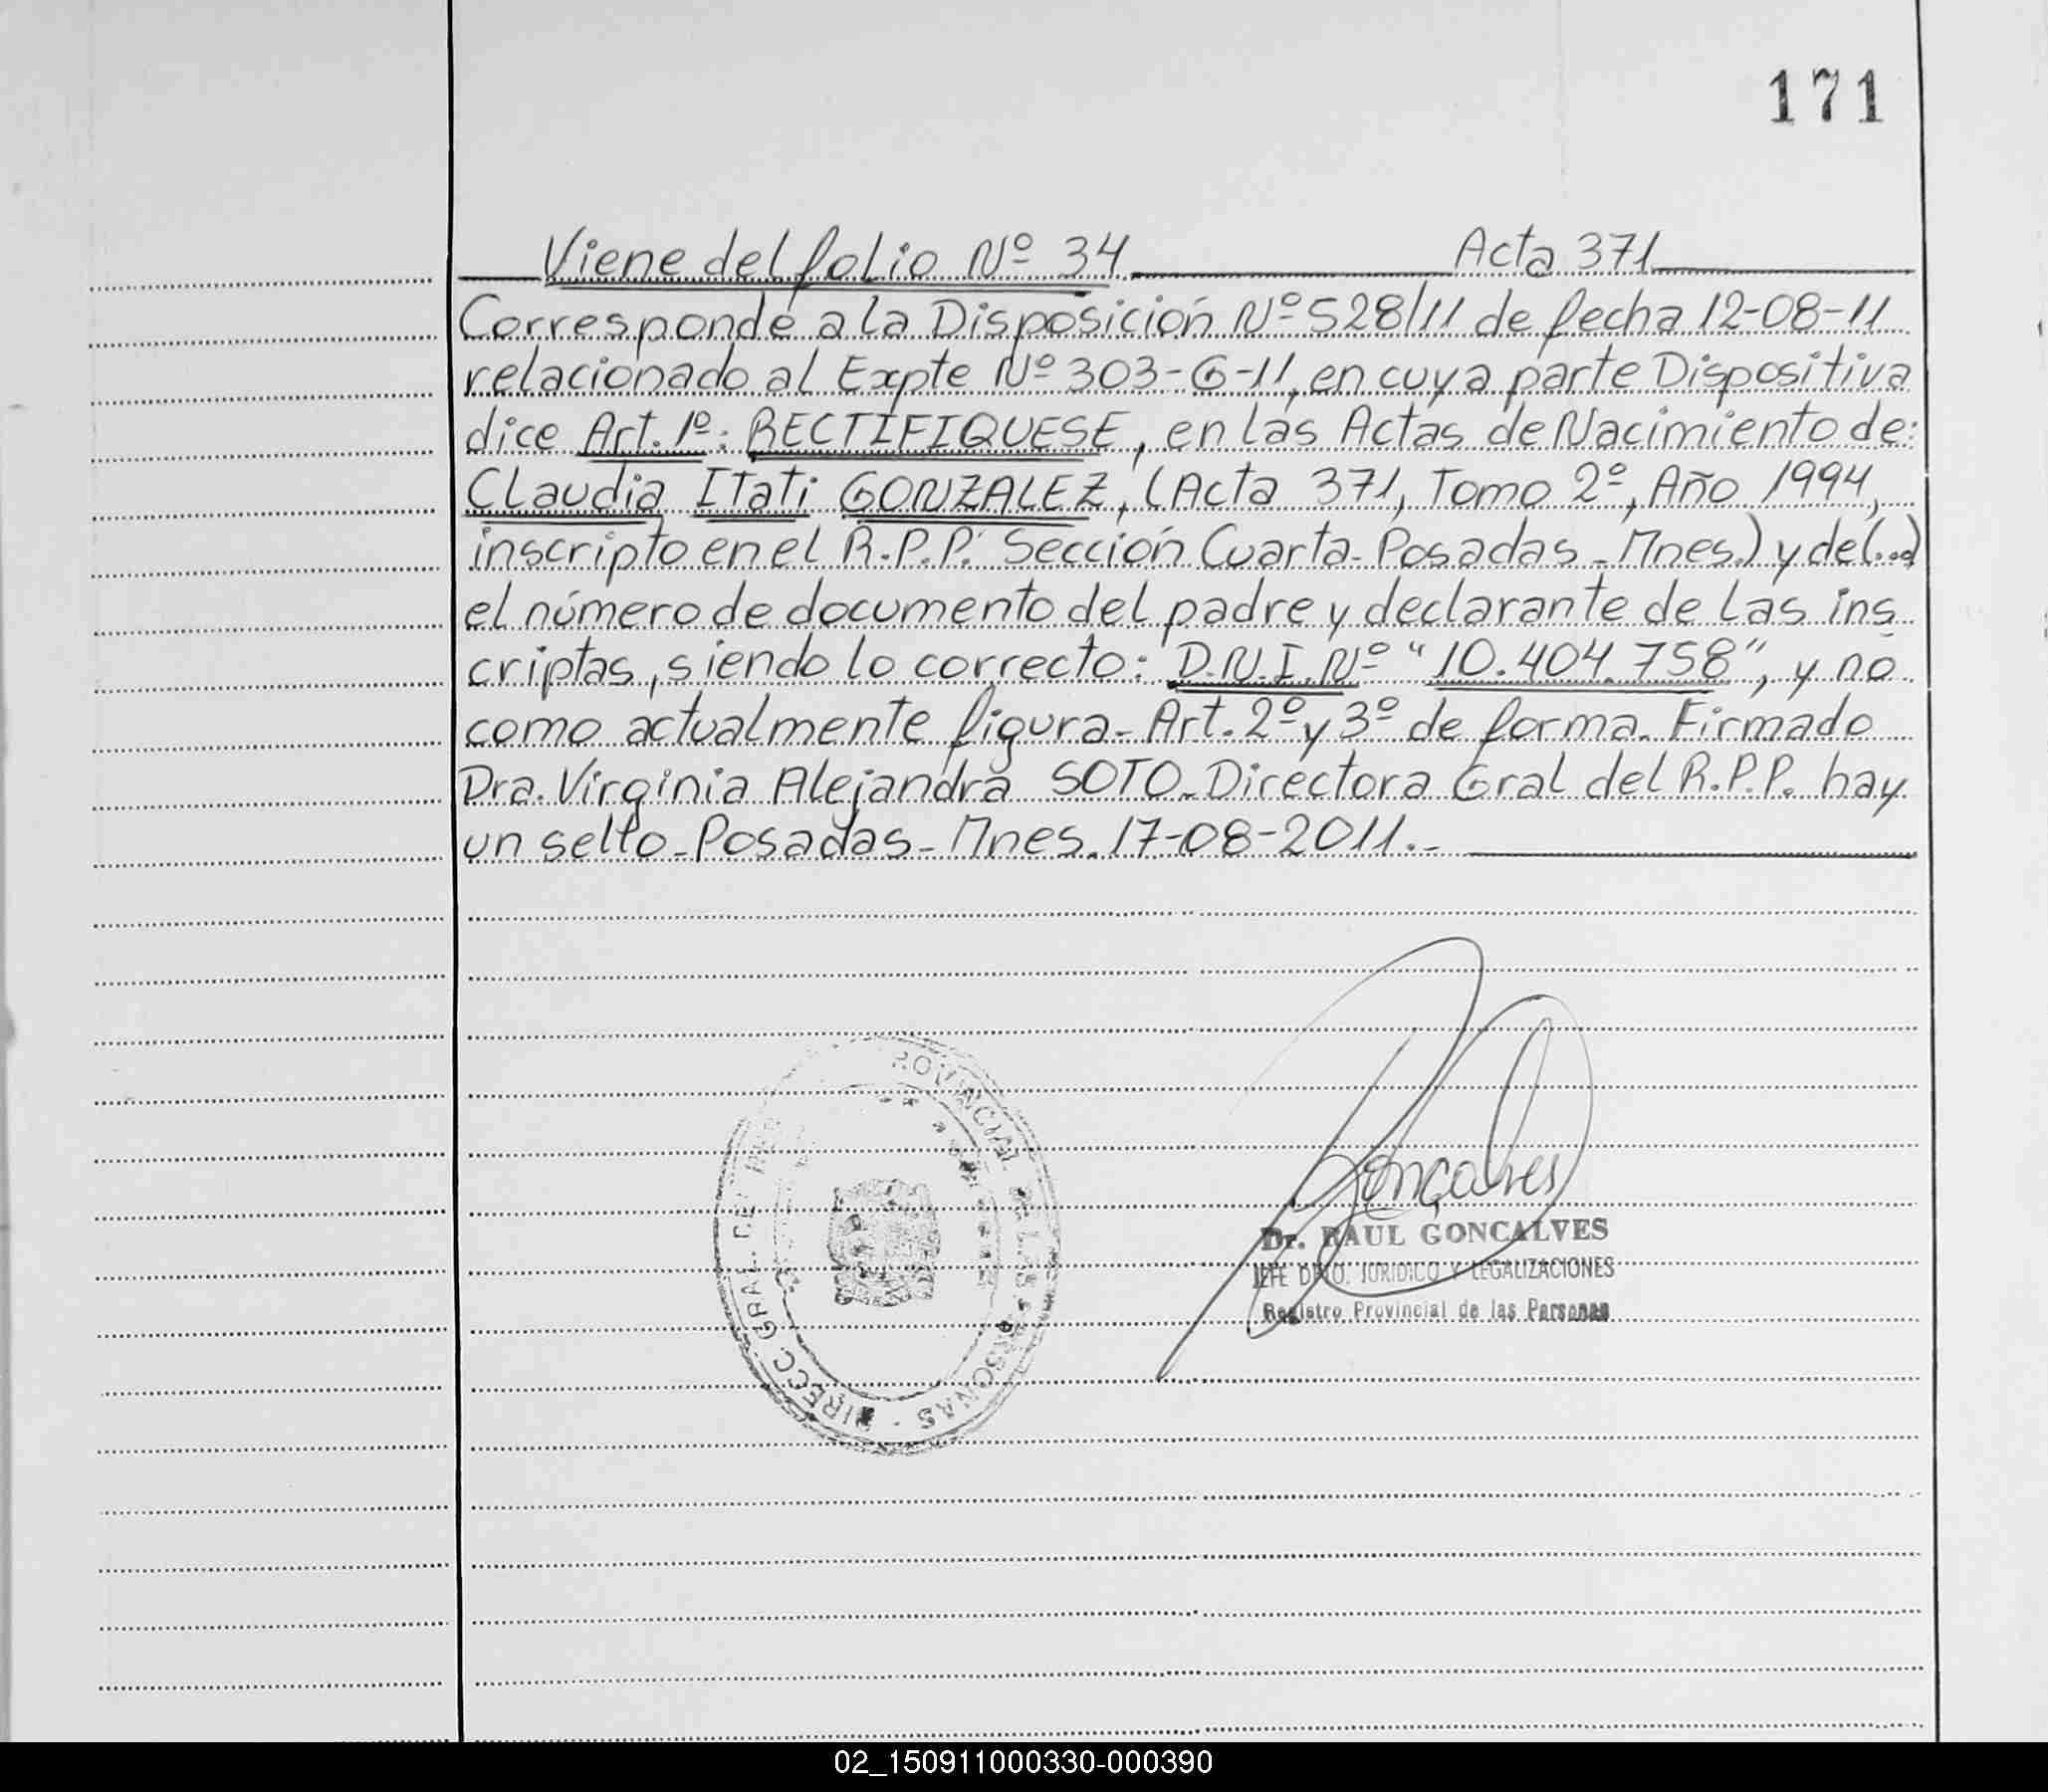 171
Viene del folio Nº 34 Acta 371
Corresponde a la Disposición Nº 528/11 de fecha 12-08-11
relacionado al Expte Nº 303-G-11, en cuya parte Dispositiva
dice Art. 1º: RECTIFIQUESE, en las Actas de Nacimiento de:
Claudia Itati GONZALEZ, (Acta 371, Tomo 2º, Año 1994,
inscripto en el R.P.P. Sección Cuarta-Posadas-Mnes.) y de (...)
el número de documento del padre y declarante de las ins
criptas, siendo lo correcto: D.N.I. Nº "10.404.758", y no
como actualmente figura- Art. 2º y 3º de forma. Firmado
Dra. Virginia Alejandra SOTO-Directora Gral del R.P.P. hay
un sello-Posadas-Mnes. 17-08-2011.-
DIRECC. GRAL. DEL PROVINCIAL DE LAS PERSONAS
Gonçalves
Dr. RAUL GONCALVES
JEFE DPTO. JURIDICO Y LEGALIZACIONES
Registro Provincial de las Personas
02_150911000330-000390